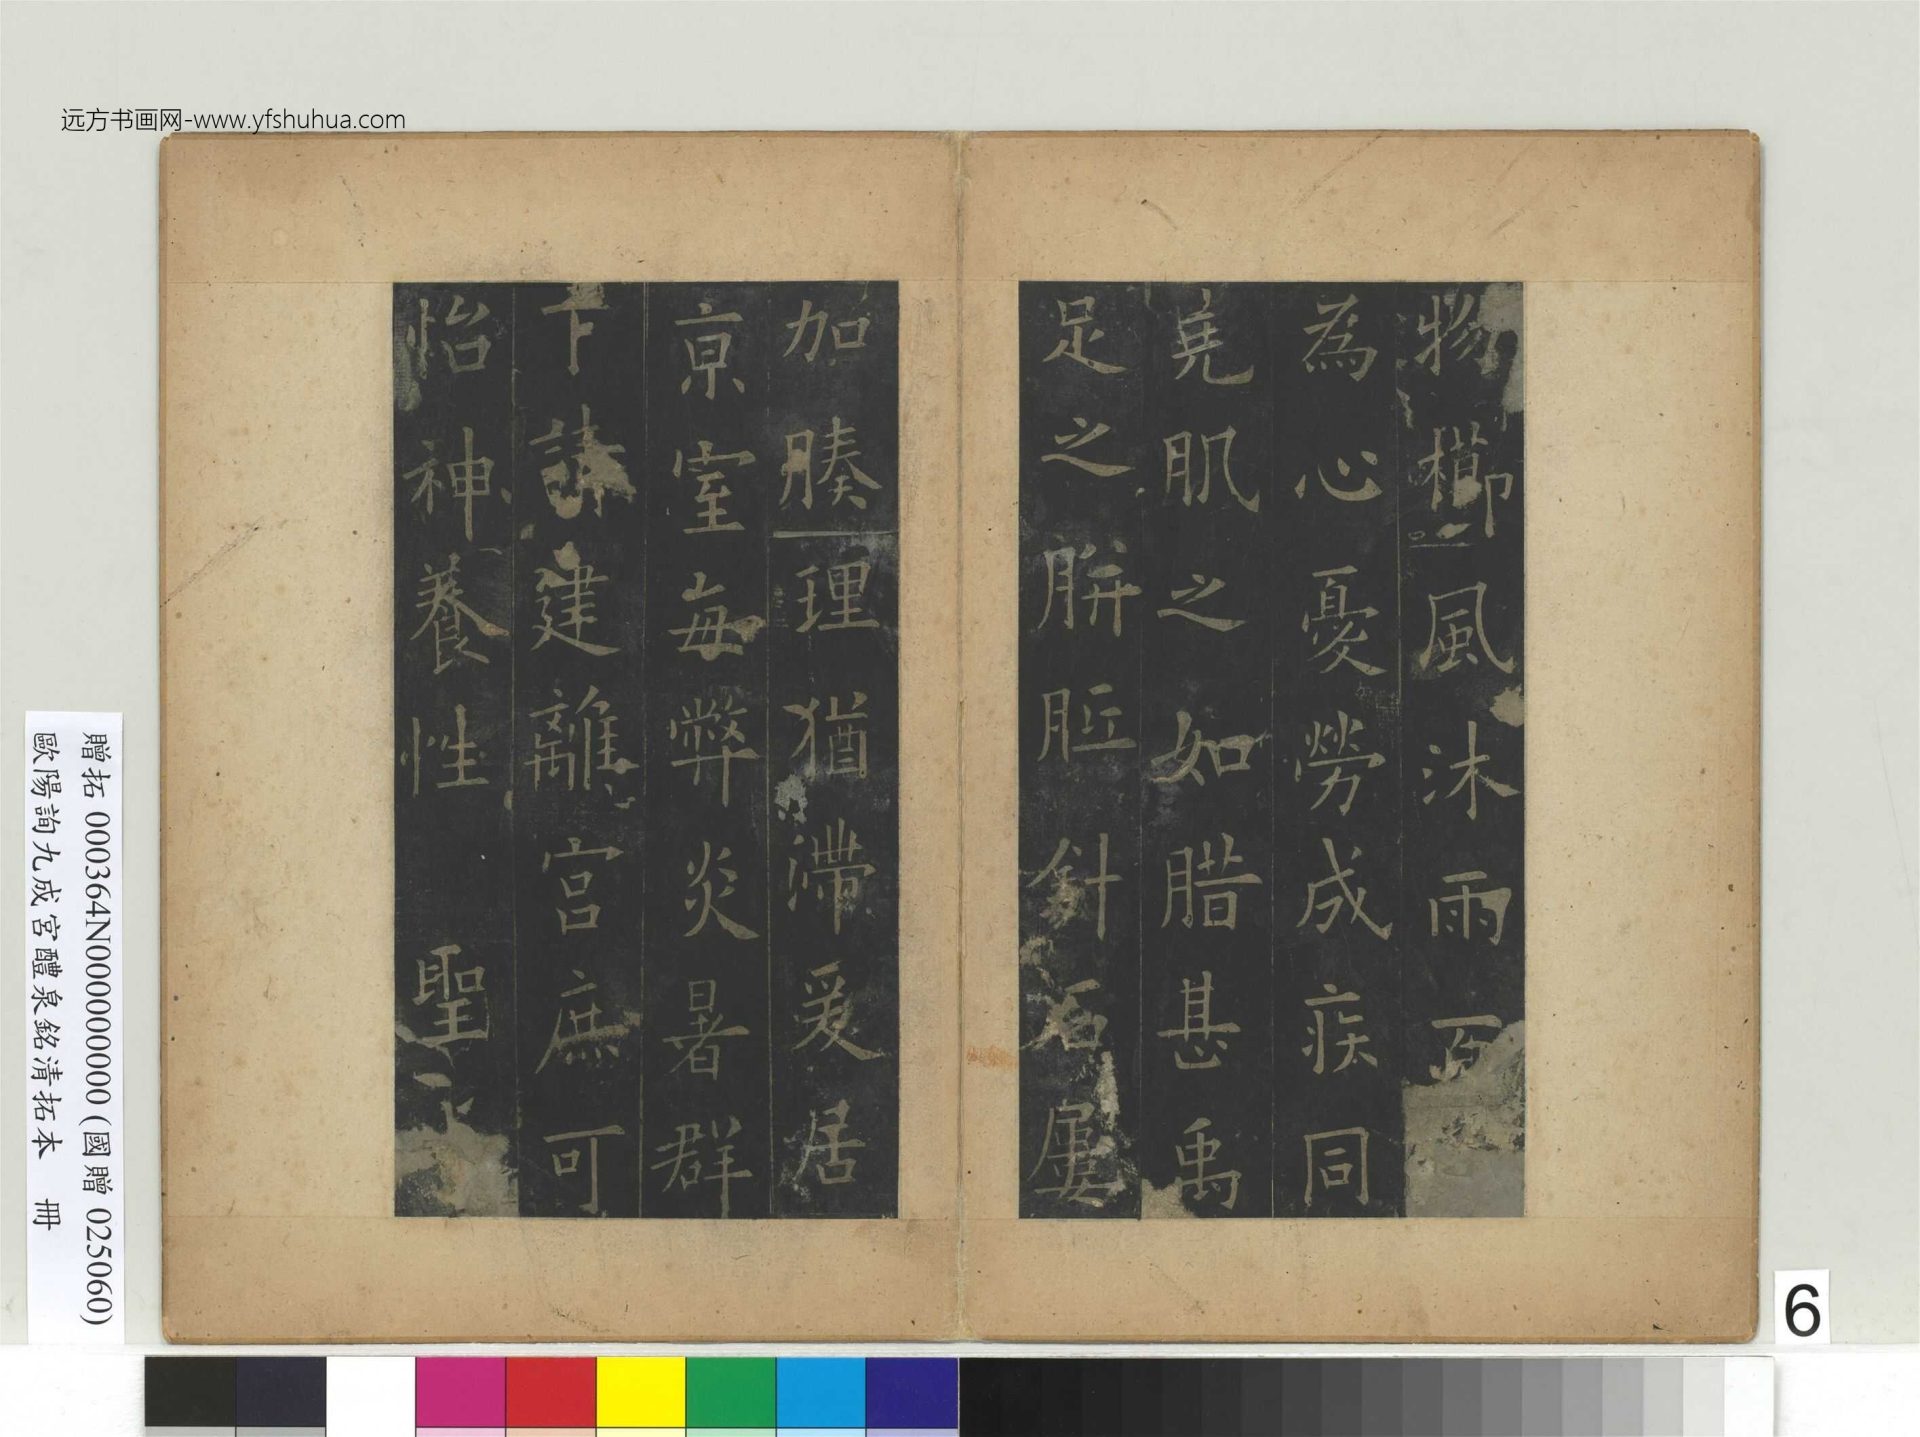 远方书画网-www.yfshuhua.com
物櫛風沐雨百
為心憂勞成疾同
堯肌之如腊甚禹
足之胼胝針石屢
加腠理猶滯爰居
京室每弊炎暑群
下請建離宮庶可
怡神養性聖
贈拓 000364N000000000 (國贈 025060)
歐陽詢九成宮醴泉銘清拓本 冊
6